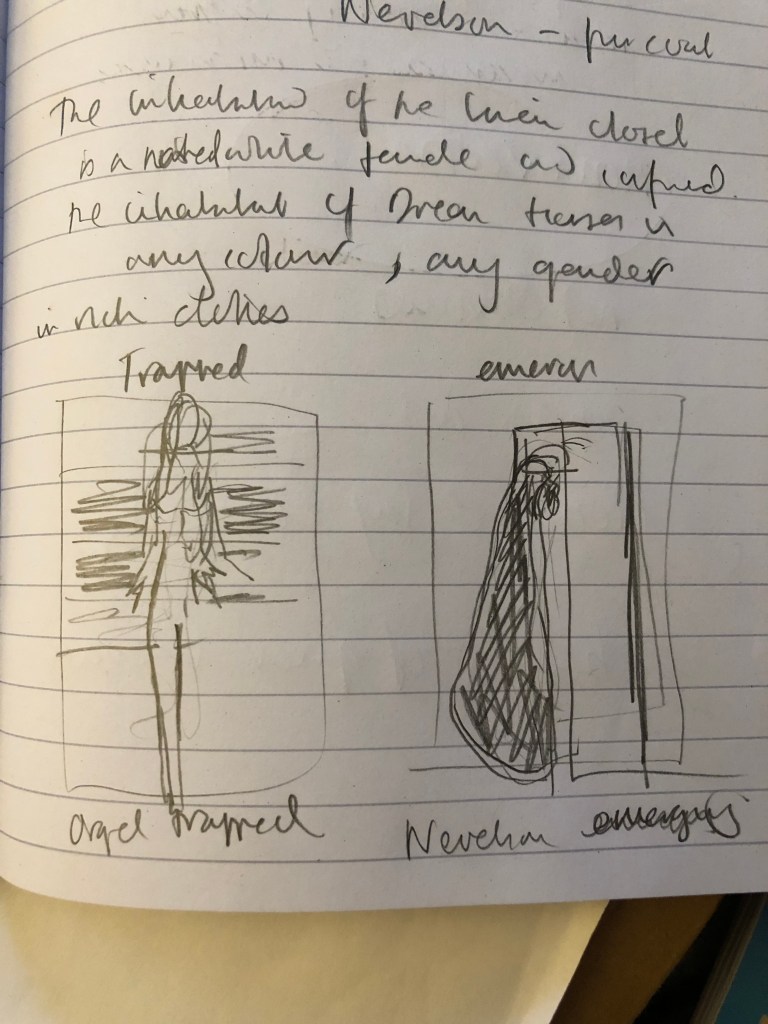 Nevelson - fur coat
The inhabitant of the linen closet
is a naked white female and confined.
The inhabitant of Dream houses is
any colour, any gender
in rich clothes
Trapped
Angel trapped
Nevelson emerging